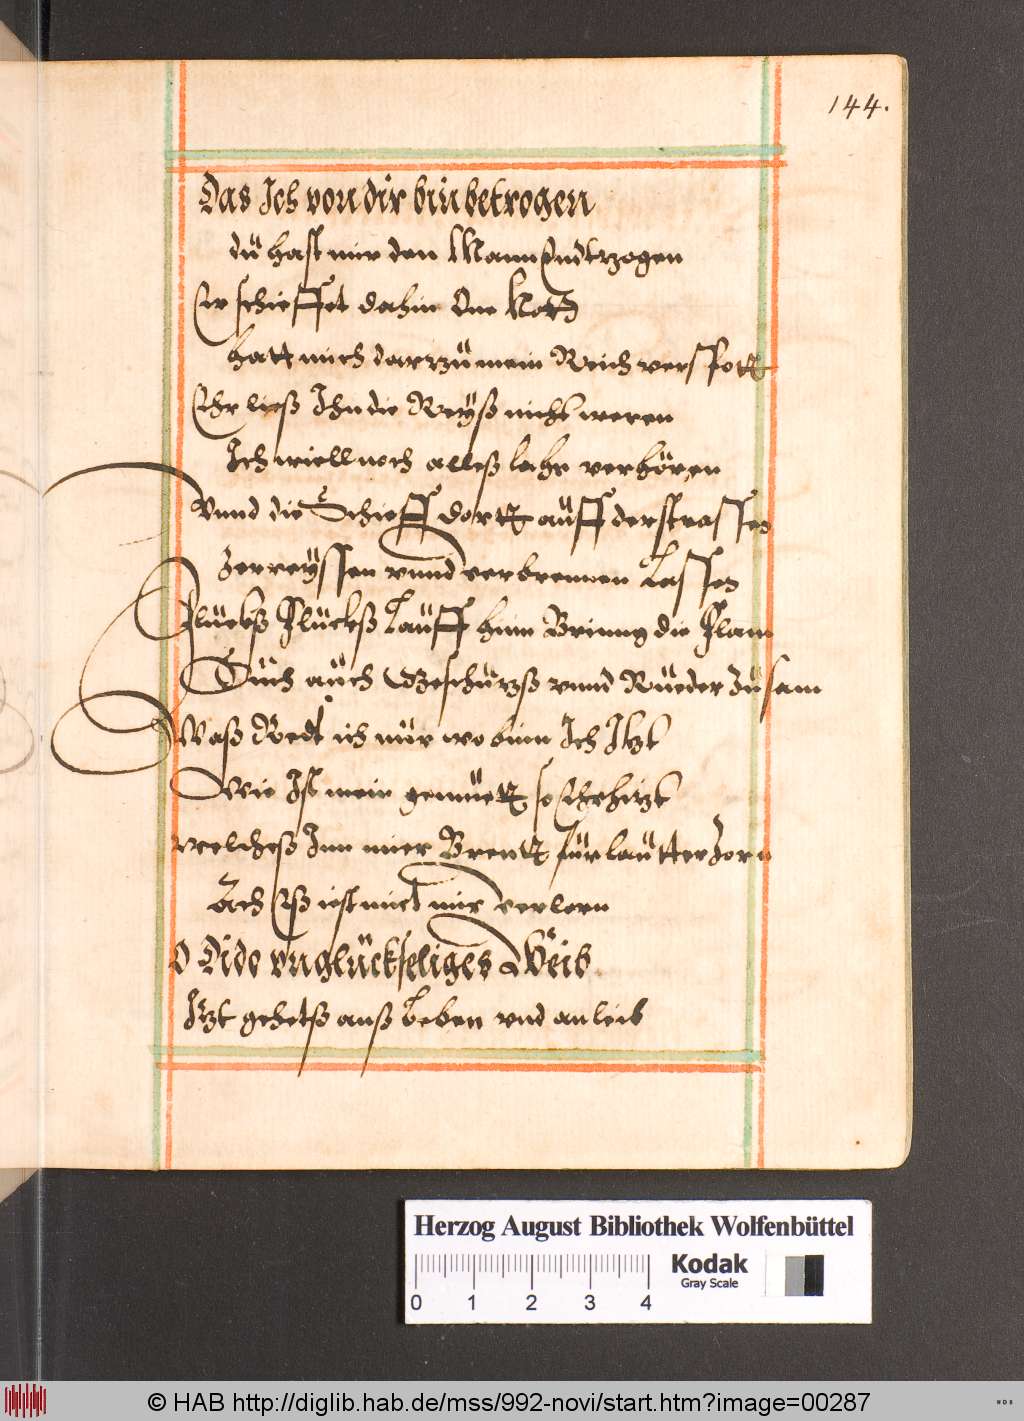 144.
Das Ich von dir bin betrogen
dü hast mir den Mann Endtzogen
Er schieffet dahin One Noth
hatt mich darzü mein Reich verspott
Ehr ließ Ihn die Reÿß nicht weren
Ich wiell noch alleß lahr verhören
Vnnd die Schieff dortt aüff der strassen
Zerreÿssen vnnd verbrennen Lassen
Flückß Flückß Laüff hinn Brinng die Flam
Süch aüch Geschürtzß vnnd Rüeder Züsam
Waß Redt ich nür wo binn Ich Itzt
Wie Ist mein gemüett so Ehrhitzt
welcheß Inn mier Brentt für laütter Zorn
Ach Eß ist mitt mir verlorn
O Dido vnglückseliges Weib
Itzt gehetß anß Leben vnd an leib
Herzog August Bibliothek Wolfenbüttel
Kodak
Gray Scale
0 1 2 3 4
© HAB http://diglib.hab.de/mss/992-novi/start.htm?image=00287